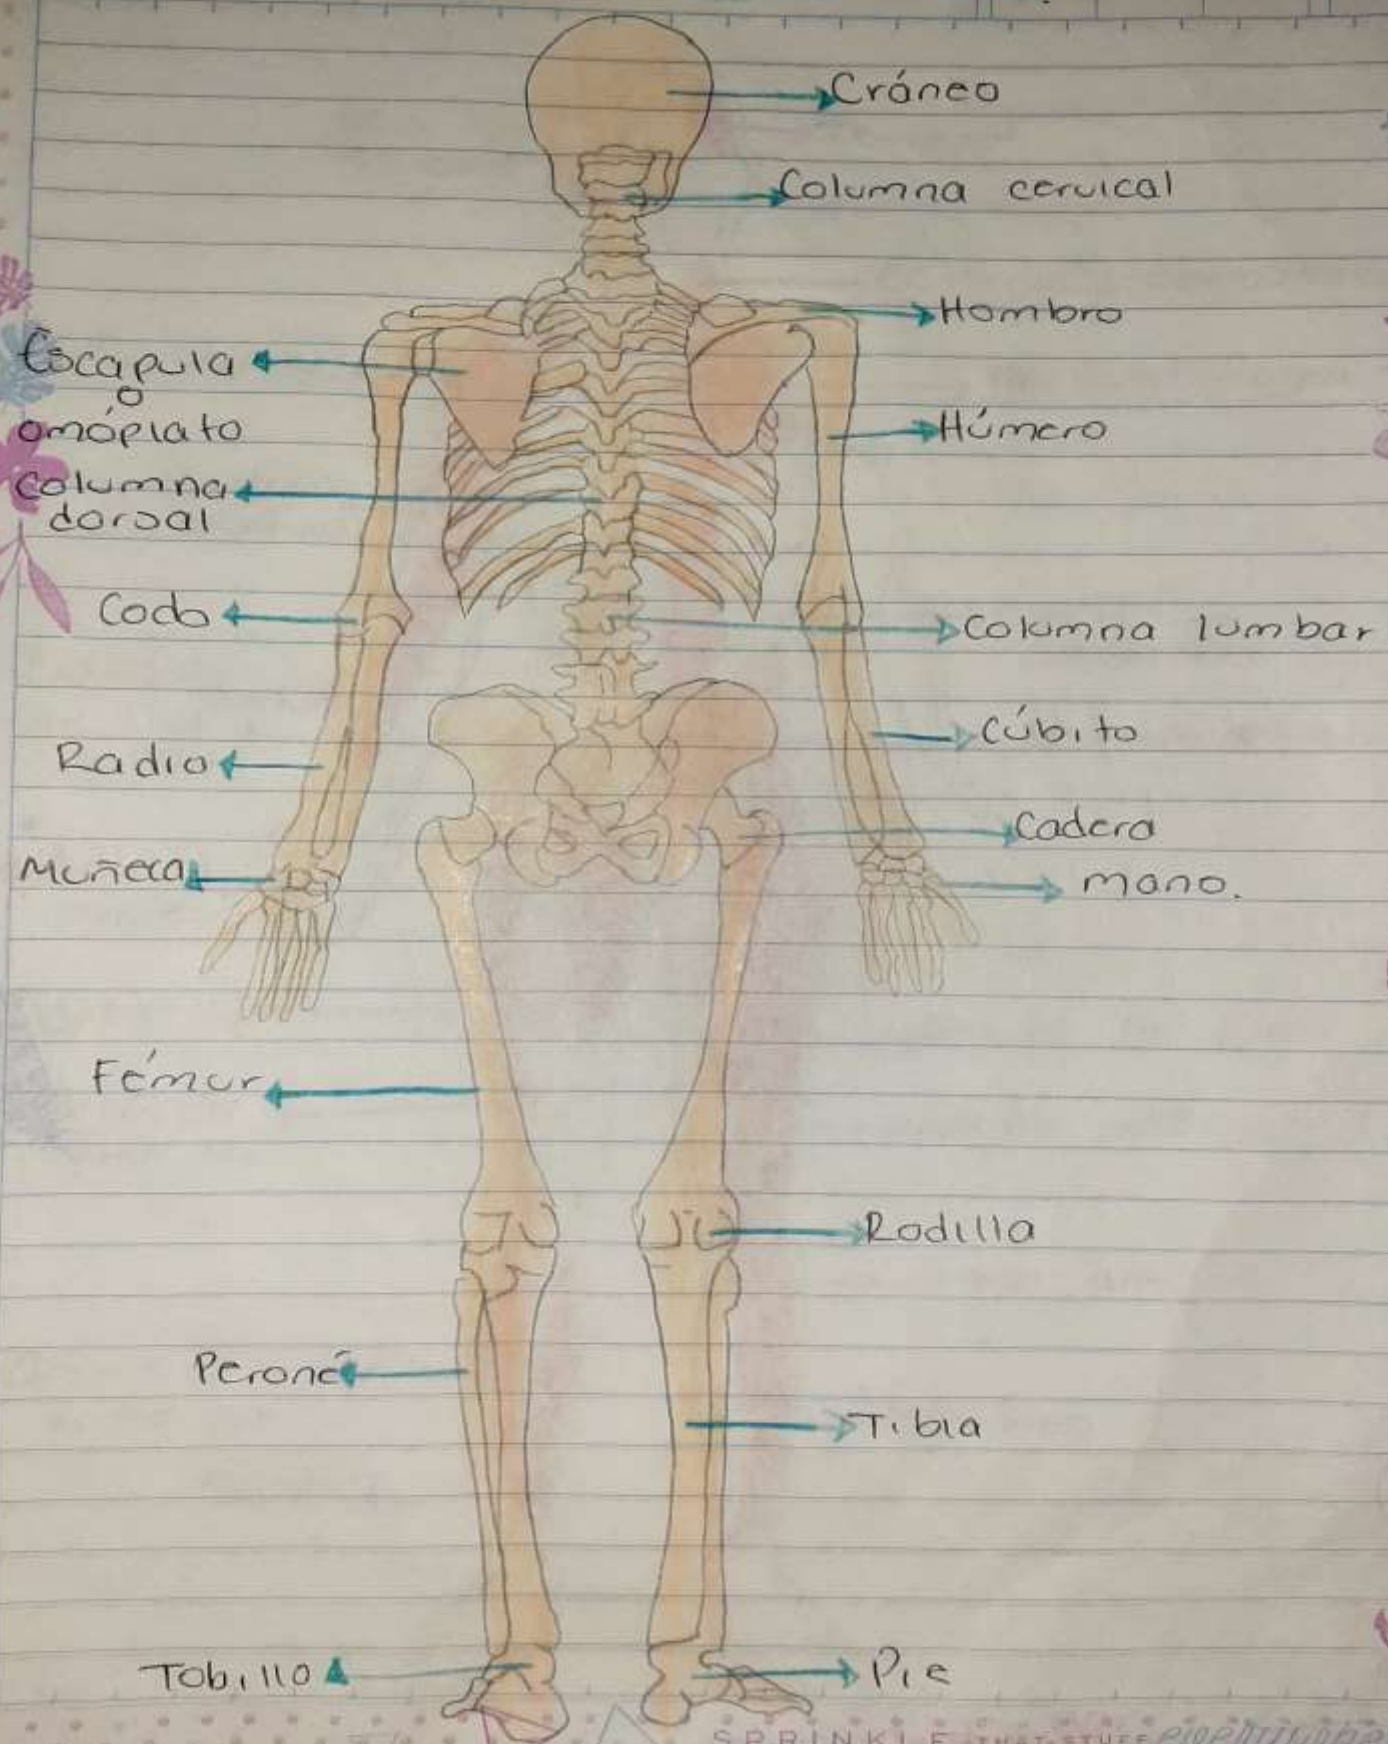 Cráneo
Columna cervical
Hombro
Escapula
o
omóplato
Húmero
Columna
dorsal
Codo
Columna lumbar
Cúbito
Radio
Cadera
Muñeca
mano.
Fémur
Rodilla
Peroné
Tibia
Tobillo
Pie
SPRINKLE THAT STUFF